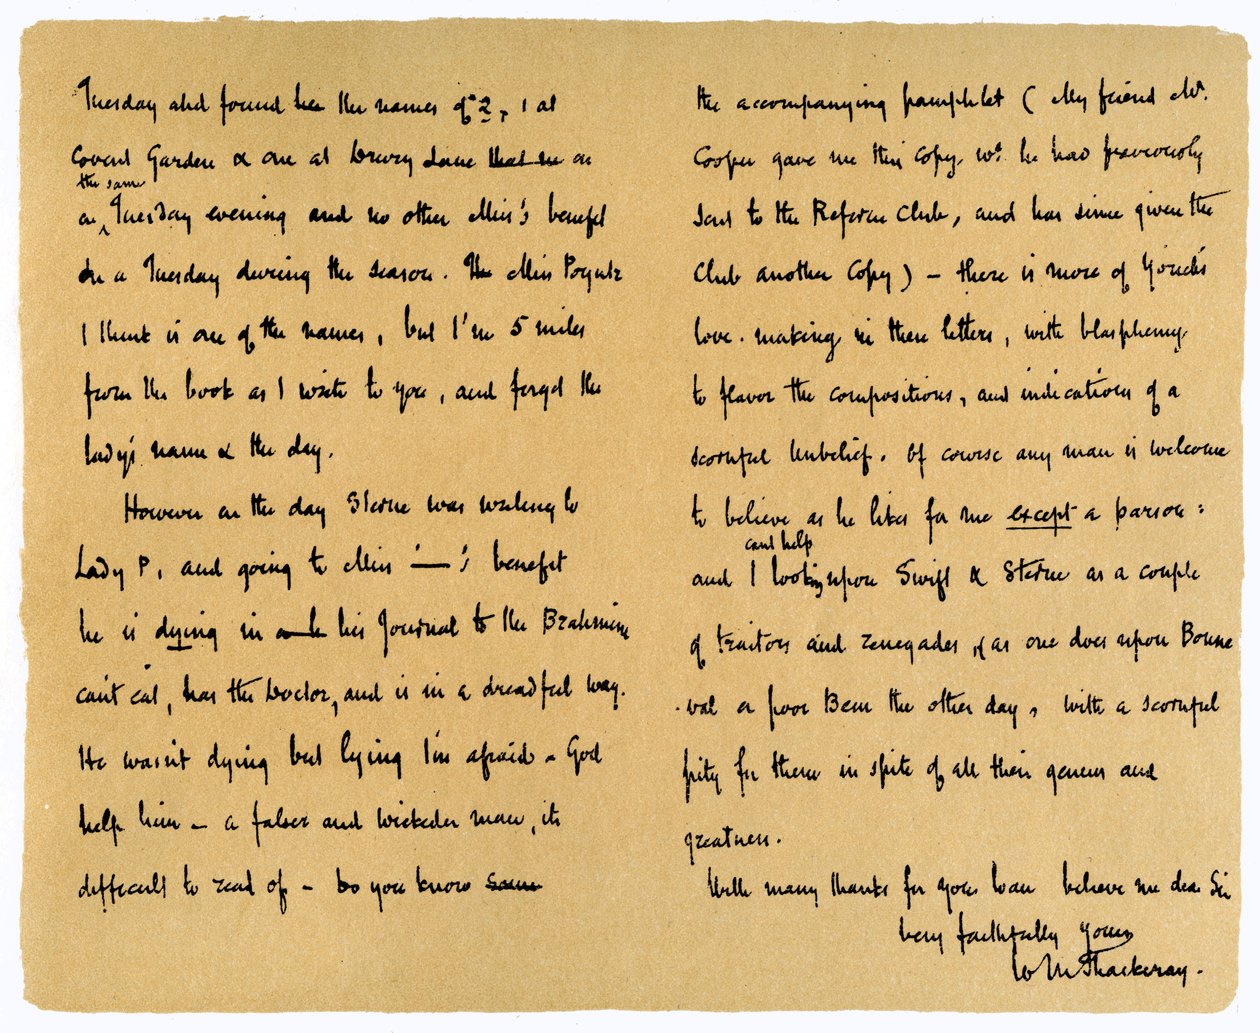 Tuesday and found her the names of 2, 1 at
Covent Garden & one at Drury Lane that on on
the same
on Tuesday evening and no other Miss's benefit
on a Tuesday during the season. Miss Poyntz
I think is one of the names, but I'm 5 miles
from the book as I write to you, and forget the
lady's name & the day.
However on the day Sterne was writing to
Lady P, and going to Miss ——'s benefit
he is dying in his Journal to the Brahmine
can't eat, has the Doctor, and is in a dreadful way.
He wasn't dying but lying I'm afraid - God
help him - a falser and wickeder man, its
difficult to read of - Do you know some
the accompanying pamphlet ( My friend Mr.
Cooper gave me this copy. wh. he had previously
sent to the Reform Club, and has since given the
Club another Copy) - there is more of Yorick's
love-making in these letters, with blasphemy
to flavor the compositions, and indications of a
scornful Unbelief. Of course any man is welcome
to believe as he likes for me except a parson :
cant help
and I looking upon Swift & Sterne as a couple
of traitors and renegades, (as one does upon Bonne
-val or poor Bem the other day, with a scornful
pity for them in spite of all their genius and
greatness.
With many thanks for your loan believe me dear Sir
Very faithfully Yours
W M Thackeray.